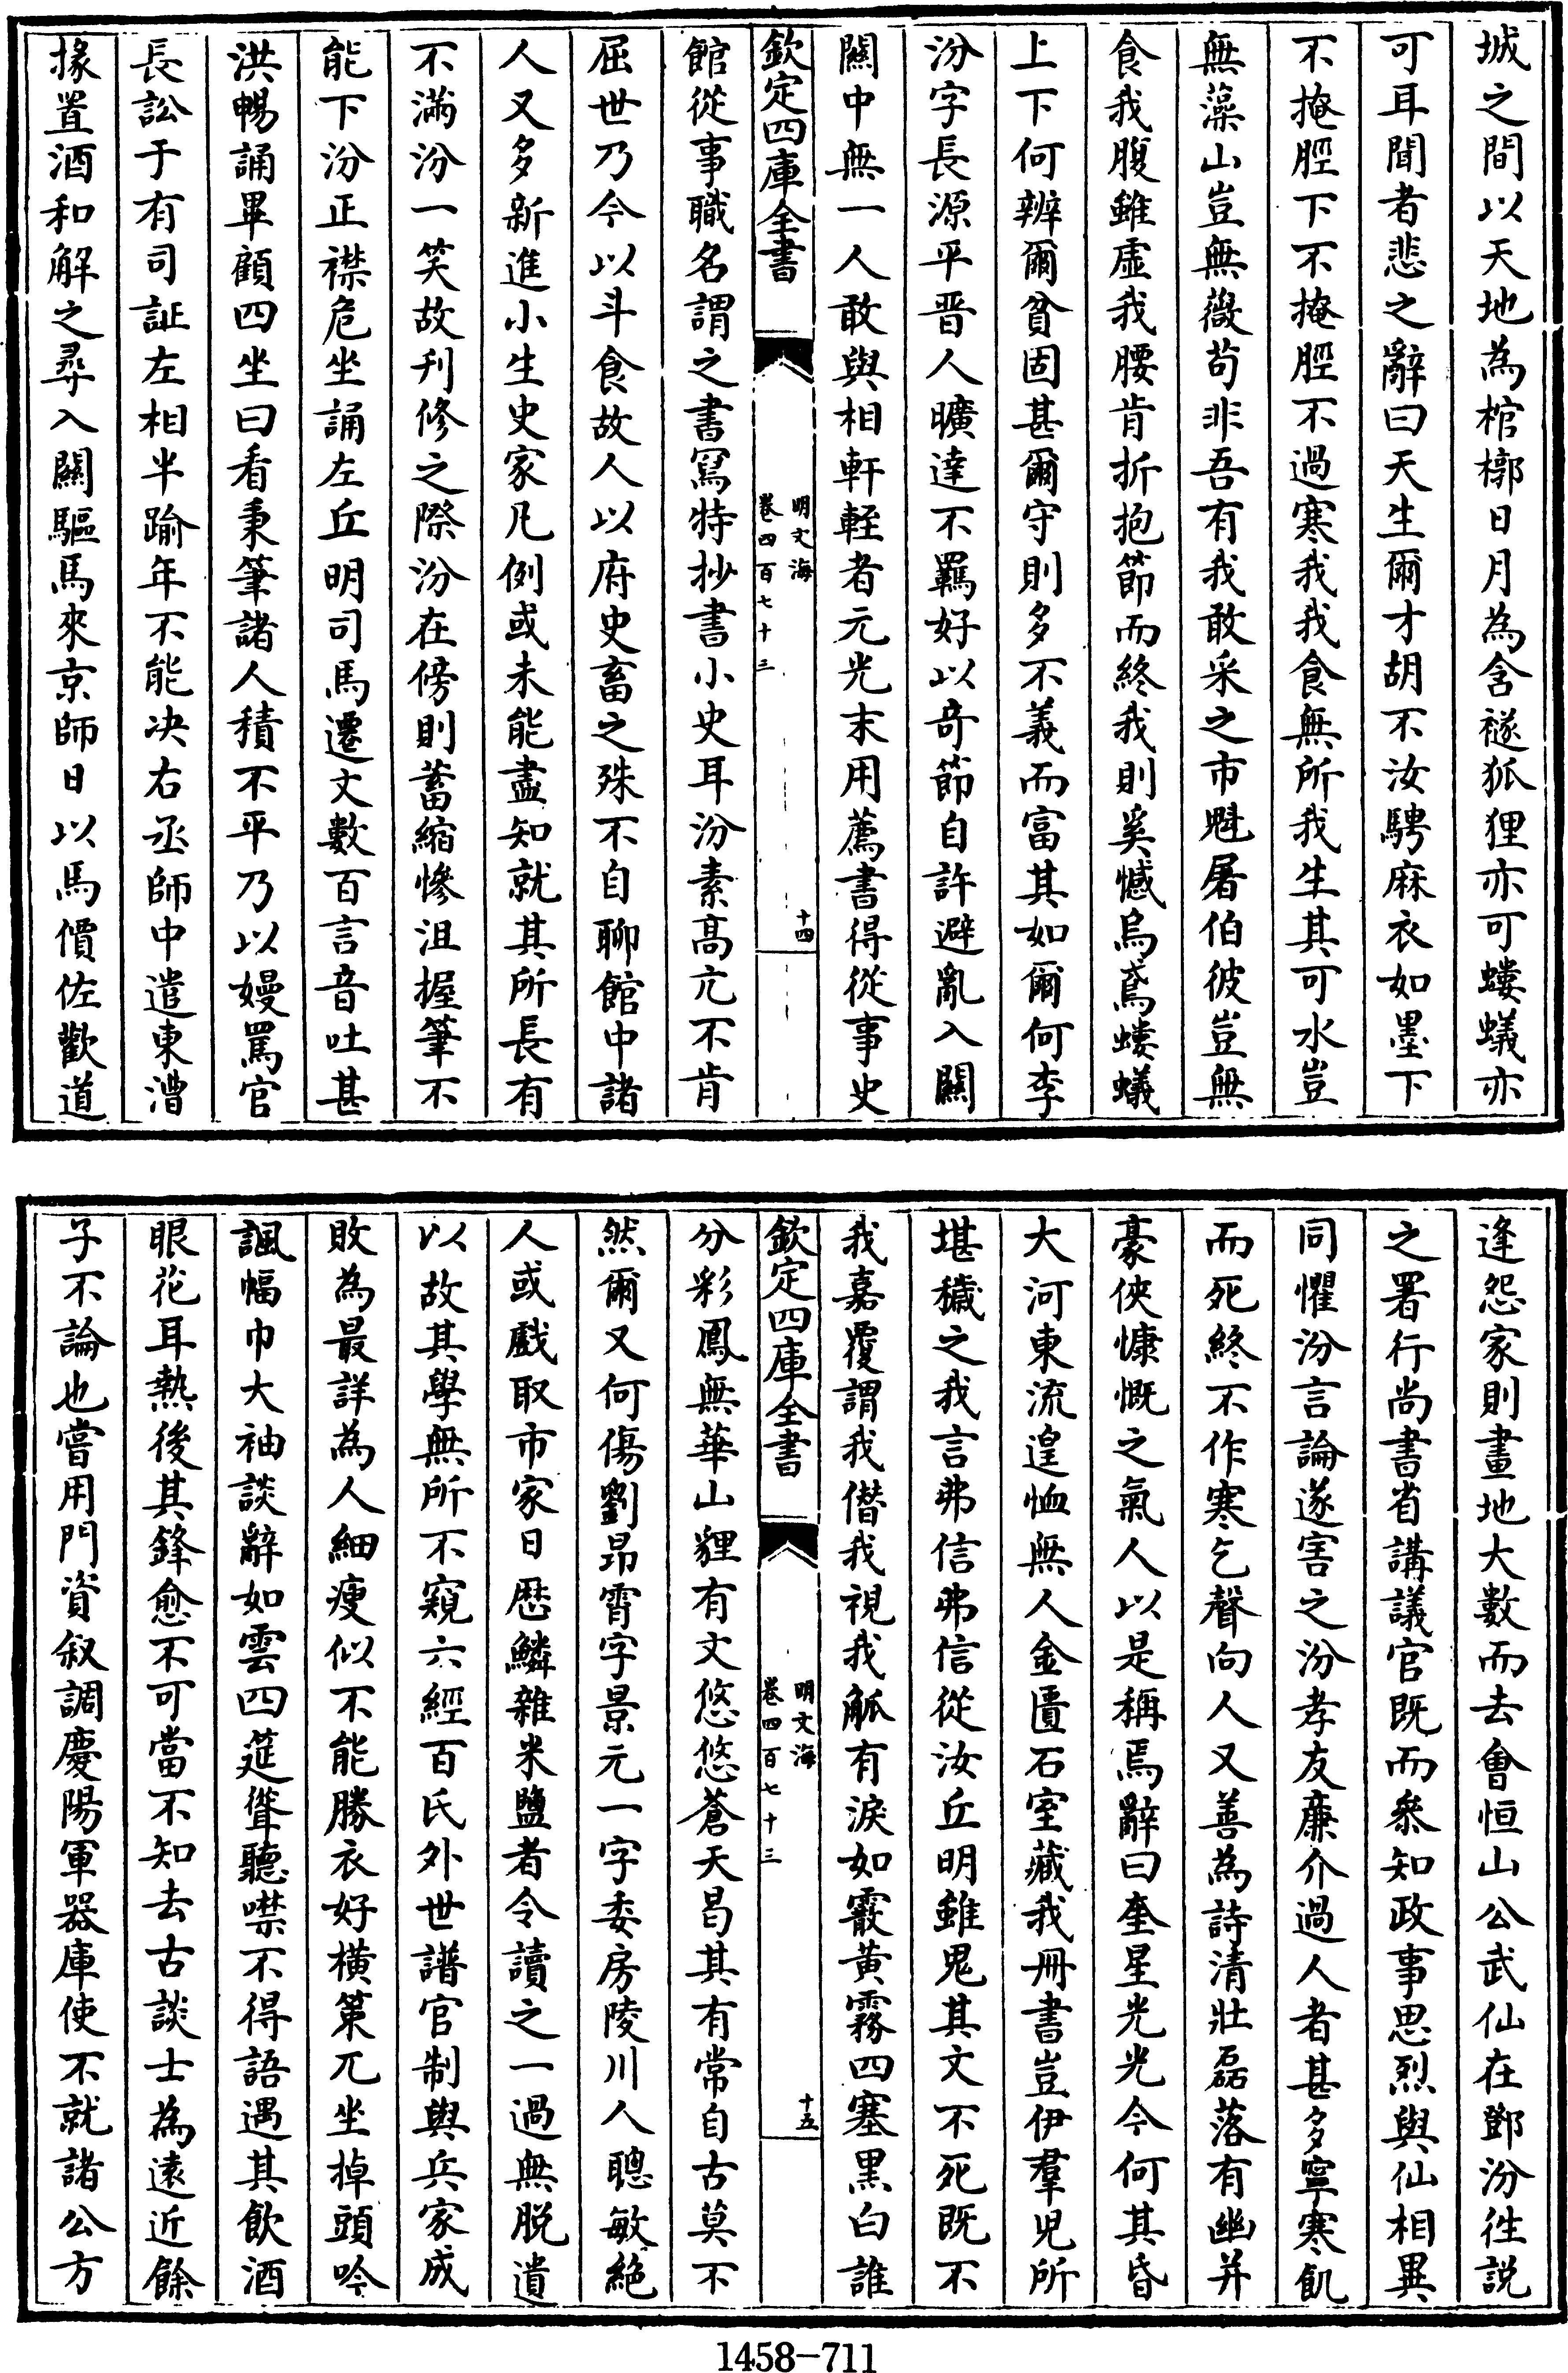 城之間以天地為棺槨日月為含襚狐狸亦可螻蟻亦
可耳聞者悲之辭曰天生爾才胡不汝騁麻衣如墨下
不掩脛下不掩脛不過寒我我食無所我生其可水豈
無藻山豈無薇苟非吾有我敢采之市魁屠伯彼豈無
食我腹雖虛我腰肯折抱節而終我則奚憾烏鳶螻蟻
上下何辨爾貧固甚爾守則多不義而富其如爾何李
汾字長源平晉人曠達不羈好以奇節自許避亂入關
關中無一人敢與相軒輊者元光末用薦書得從事史
欽定四庫全書
明文海
卷四百七十三
十四
館從事職名謂之書寫特抄書小史耳汾素高亢不肯
屈世乃今以斗食故人以府史畜之殊不自聊館中諸
人又多新進小生史家凡例或未能盡知就其所長有
不滿汾一笑故刋修之際汾在傍則蓄縮慘沮握筆不
能下汾正襟危坐誦左丘明司馬遷文數百言音吐甚
洪暢誦畢顧四坐曰看秉筆諸人積不平乃以嫚罵官
長訟于有司証左相半踰年不能决右丞師中遣東漕
掾置酒和解之尋入關驅馬來京師日以馬價佐歡道
逢怨家則畫地大數而去會恒山公武仙在鄧汾徃説
之署行尚書省講議官既而叅知政事思烈與仙相異
同懼汾言論遂害之汾孝友廉介過人者甚多寧寒飢
而死終不作寒乞聲向人又善為詩清壯磊落有幽并
豪俠慷慨之氣人以是稱焉辭曰奎星光光今何其昏
大河東流遑恤無人金匱石室藏我冊書豈伊羣兒所
堪穢之我言弗信弗信從汝丘明雖鬼其文不死既不
我嘉覆謂我僭我視我觚有淚如霰黄霧四塞黑白誰
欽定四庫全書
明文海
卷四百七十三
十五
分彩鳳無華山貍有文悠悠蒼天曷其有常自古莫不
然爾又何傷劉昻霄字景元一字委房陵川人聰敏絶
人或戲取市家日厯鱗雜米鹽者令讀之一過無脱遺
以故其學無所不窺六經百氏外世譜官制與兵家成
敗為最詳為人細瘦似不能勝衣好橫策兀坐掉頭吟
諷幅巾大袖談辭如雲四筵聳聽噤不得語遇其飲酒
眼花耳熱後其鋒愈不可當不知去古談士為遠近餘
子不論也嘗用門資叙調慶陽軍器庫使不就諸公方
1458-711